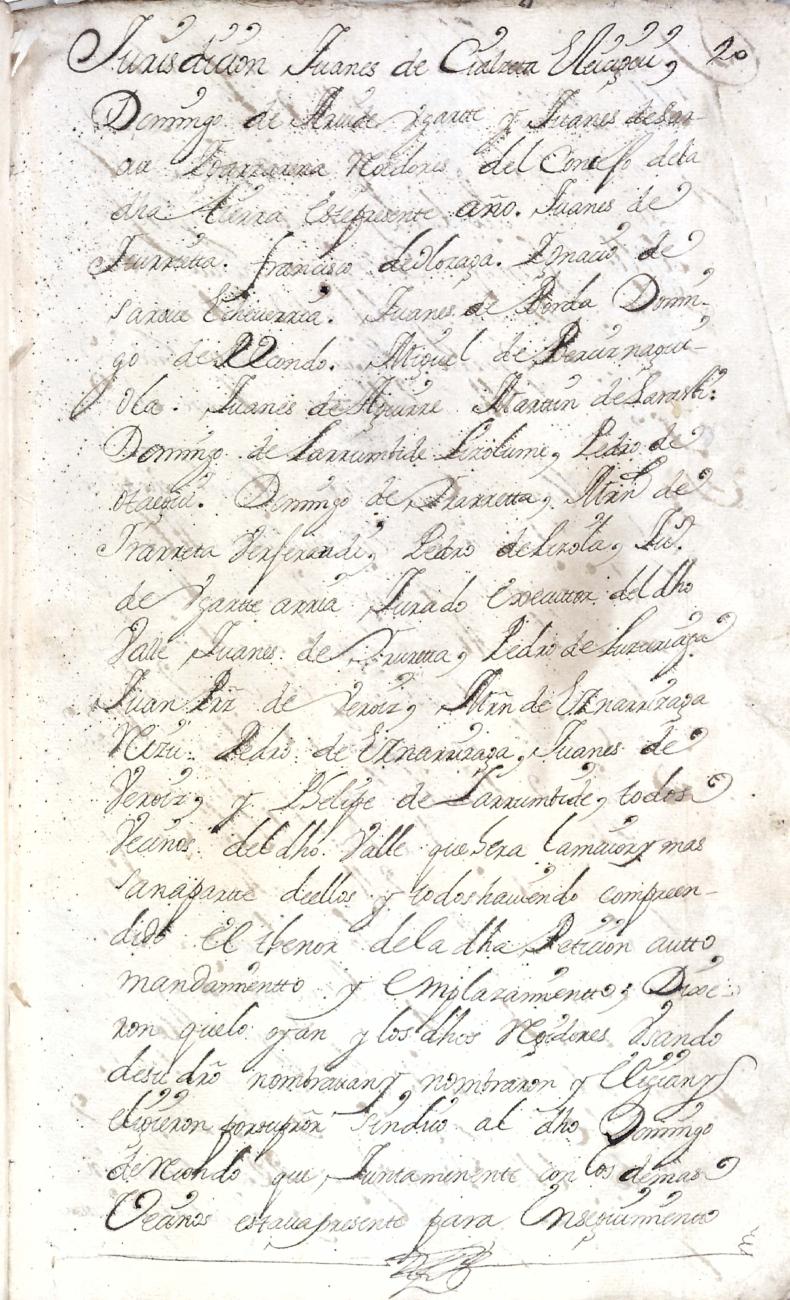 20
Jurisdicion Juanes de Elicaçecu,
Domingo de Yartte y Juanes de Sar-
au Ybarrarena Rexidores del Concejo dela
dha tierra este presente año. Juanes de
Yturretta. francisco de Olozaga. Ygnacio de
sarrue Echeuerria. Juanes de Borda Domin-
go de Recondo. Miguel de
ola. Juanes de Aguirre Martin de
Domingo de Larrumbide Lizolume, Pedro de
otaegui. Domingo de Yrarretta, Mrñ de
Yrarreta Pedro de Lizola, Ju.
de Ygartte arria Jurado Executtor del dho
Valle Juanes de Yruretta, Pedro de Luzuriaga
Juan Prz de Veroiz, Mrñ de Eznarrizaga
Pedro de Eznarrizaga, Juanes de
Veroiz, y Phelipe de Larrumbide, todos
Vecinos del dho Valle que hera la maior y mas
sana partte de ellos y todos hauiendo compreen-
dido el thenor de la dha Peticion autto
mandamientto y emplazamientto; Dixe-
ron que lo oyan y los dhos Rexidores Vsando
de su dro nombrauan y nombraron y Eligian y
eligieron por su prôr sindico al dho Domingo
de Recondo que Juntamente con los demas
Vecinos estaua presente para Enseguimiento